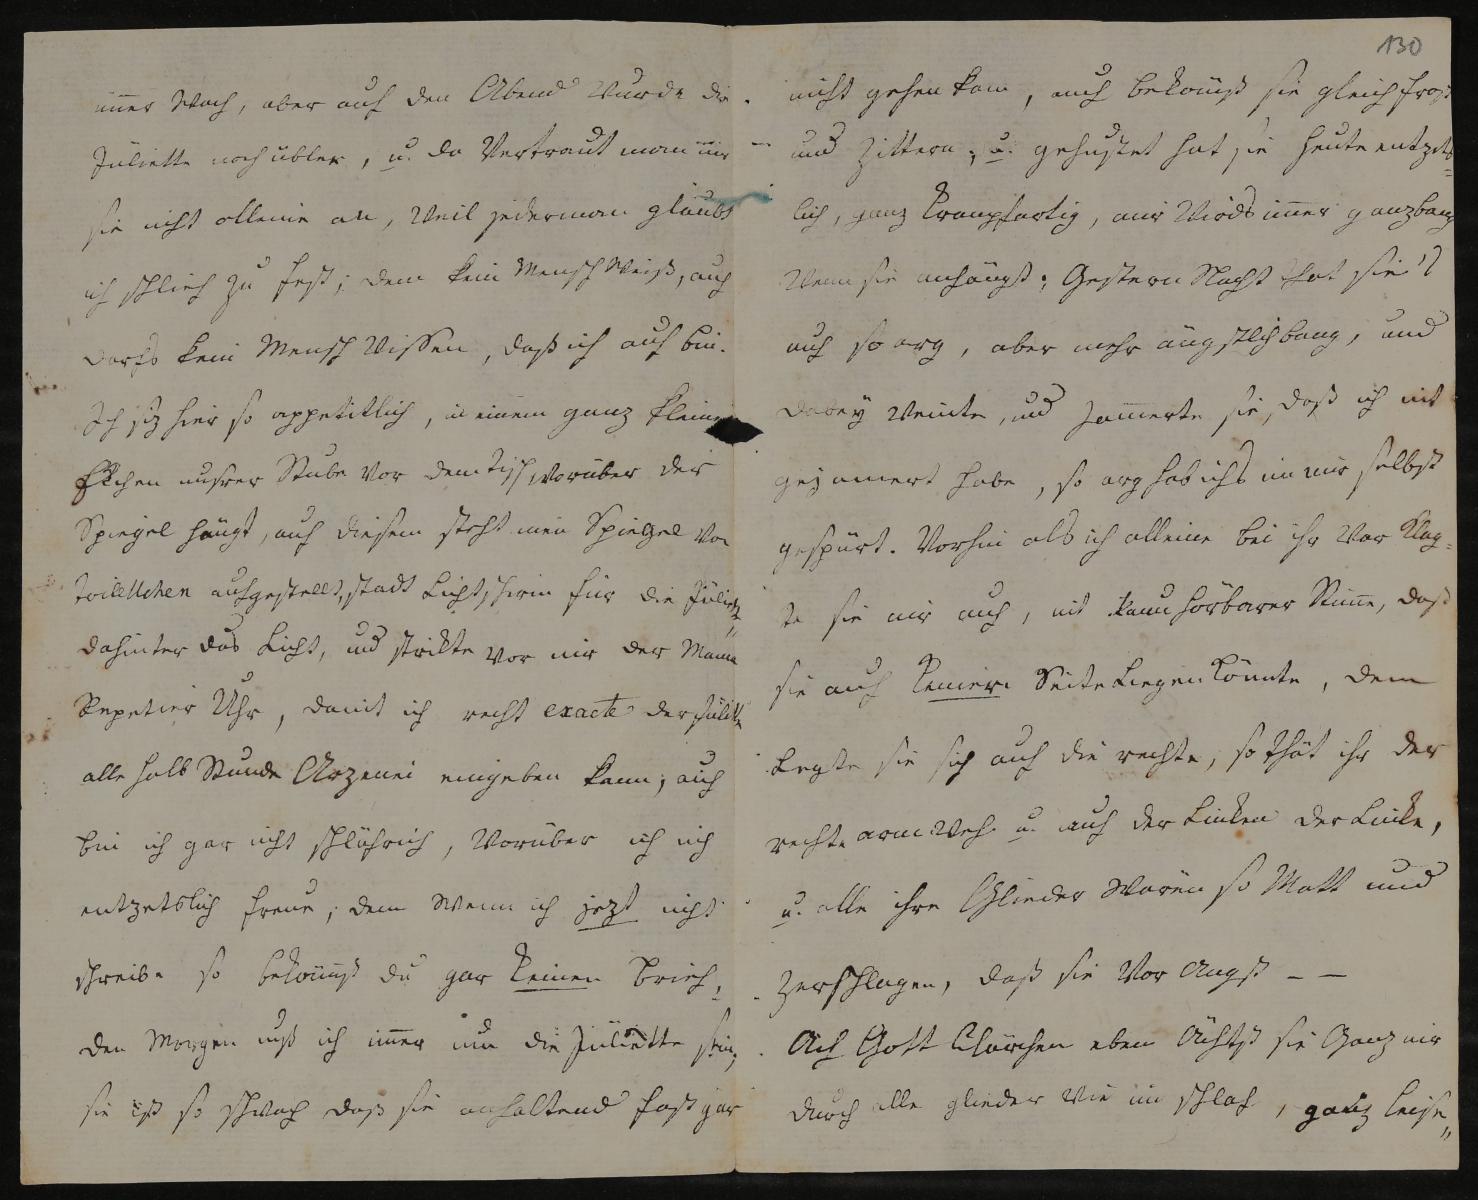 immer Wach, aber auf den Abend Wurde die
Juliette noch übler, u. da Vertraut man mir
sie nicht alleine an, Weil jederman glaubt
ich schlief zu fest; denn kein Mensch Weiß, auch
darfs kein Mensch Wissen, daß ich auf bin.
Ich siz hier so appetitlich, in einem ganz kleinen
Ekchen unsrer Stube Vor dem Tisch, Worüber der
Spiegel hängt, auf diesem steht mein Spiegel Von
Toilettchen aufgestellt, statt Lichtschirm für die Juliette
dahinter das Licht, und strikte Vor mir der Mama
Repetier Uhr, damit ich recht exacte der Juliette
alle halb Stunde Arzenei eingeben kann; auch
bin ich gar nicht schläfrich, Worüber ich mich
entzetslich freue; denn Wenn ich jezt nicht
schreibe so bekömmst du gar keinen Brief,
den Morgen muß ich immer um die Juliette sein,
sie ist so schwach daß sie anhaltend fast gar
130
nicht gehen kann, auch bekömmt sie gleich Frost
und Zittern; u. gehustet hat sie heute entzets-
lich, ganz Krampfartig, mir Wirds immer ganz bang
Wenn sie anfängt; Gestern Nacht that sie's
auch so arg, aber mehr ängstlich bang, und
dabey Weinte, und Jammerte sie, daß ich mit
gejamert habe, so arg hab ichs in mir selbst
gespürt. Vorhin als ich alleine bei ihr War Klag-
te sie mir auch, mit kaum hörbarer Stimme, daß
sie auf keiner Seite Liegen könnte, denn
Legte sie sich auf die rechte, so thät ihr der
rechte arm Weh u. auf der Linken der Linke,
u. alle ihre Glieder Waren so Matt und
Zerschlagen, daß sie Vor Angst – –
Ach Gott Clärchen eben Ächtst sie Ganz mir
durch alle glieder Wie im schlaf, ganz leise